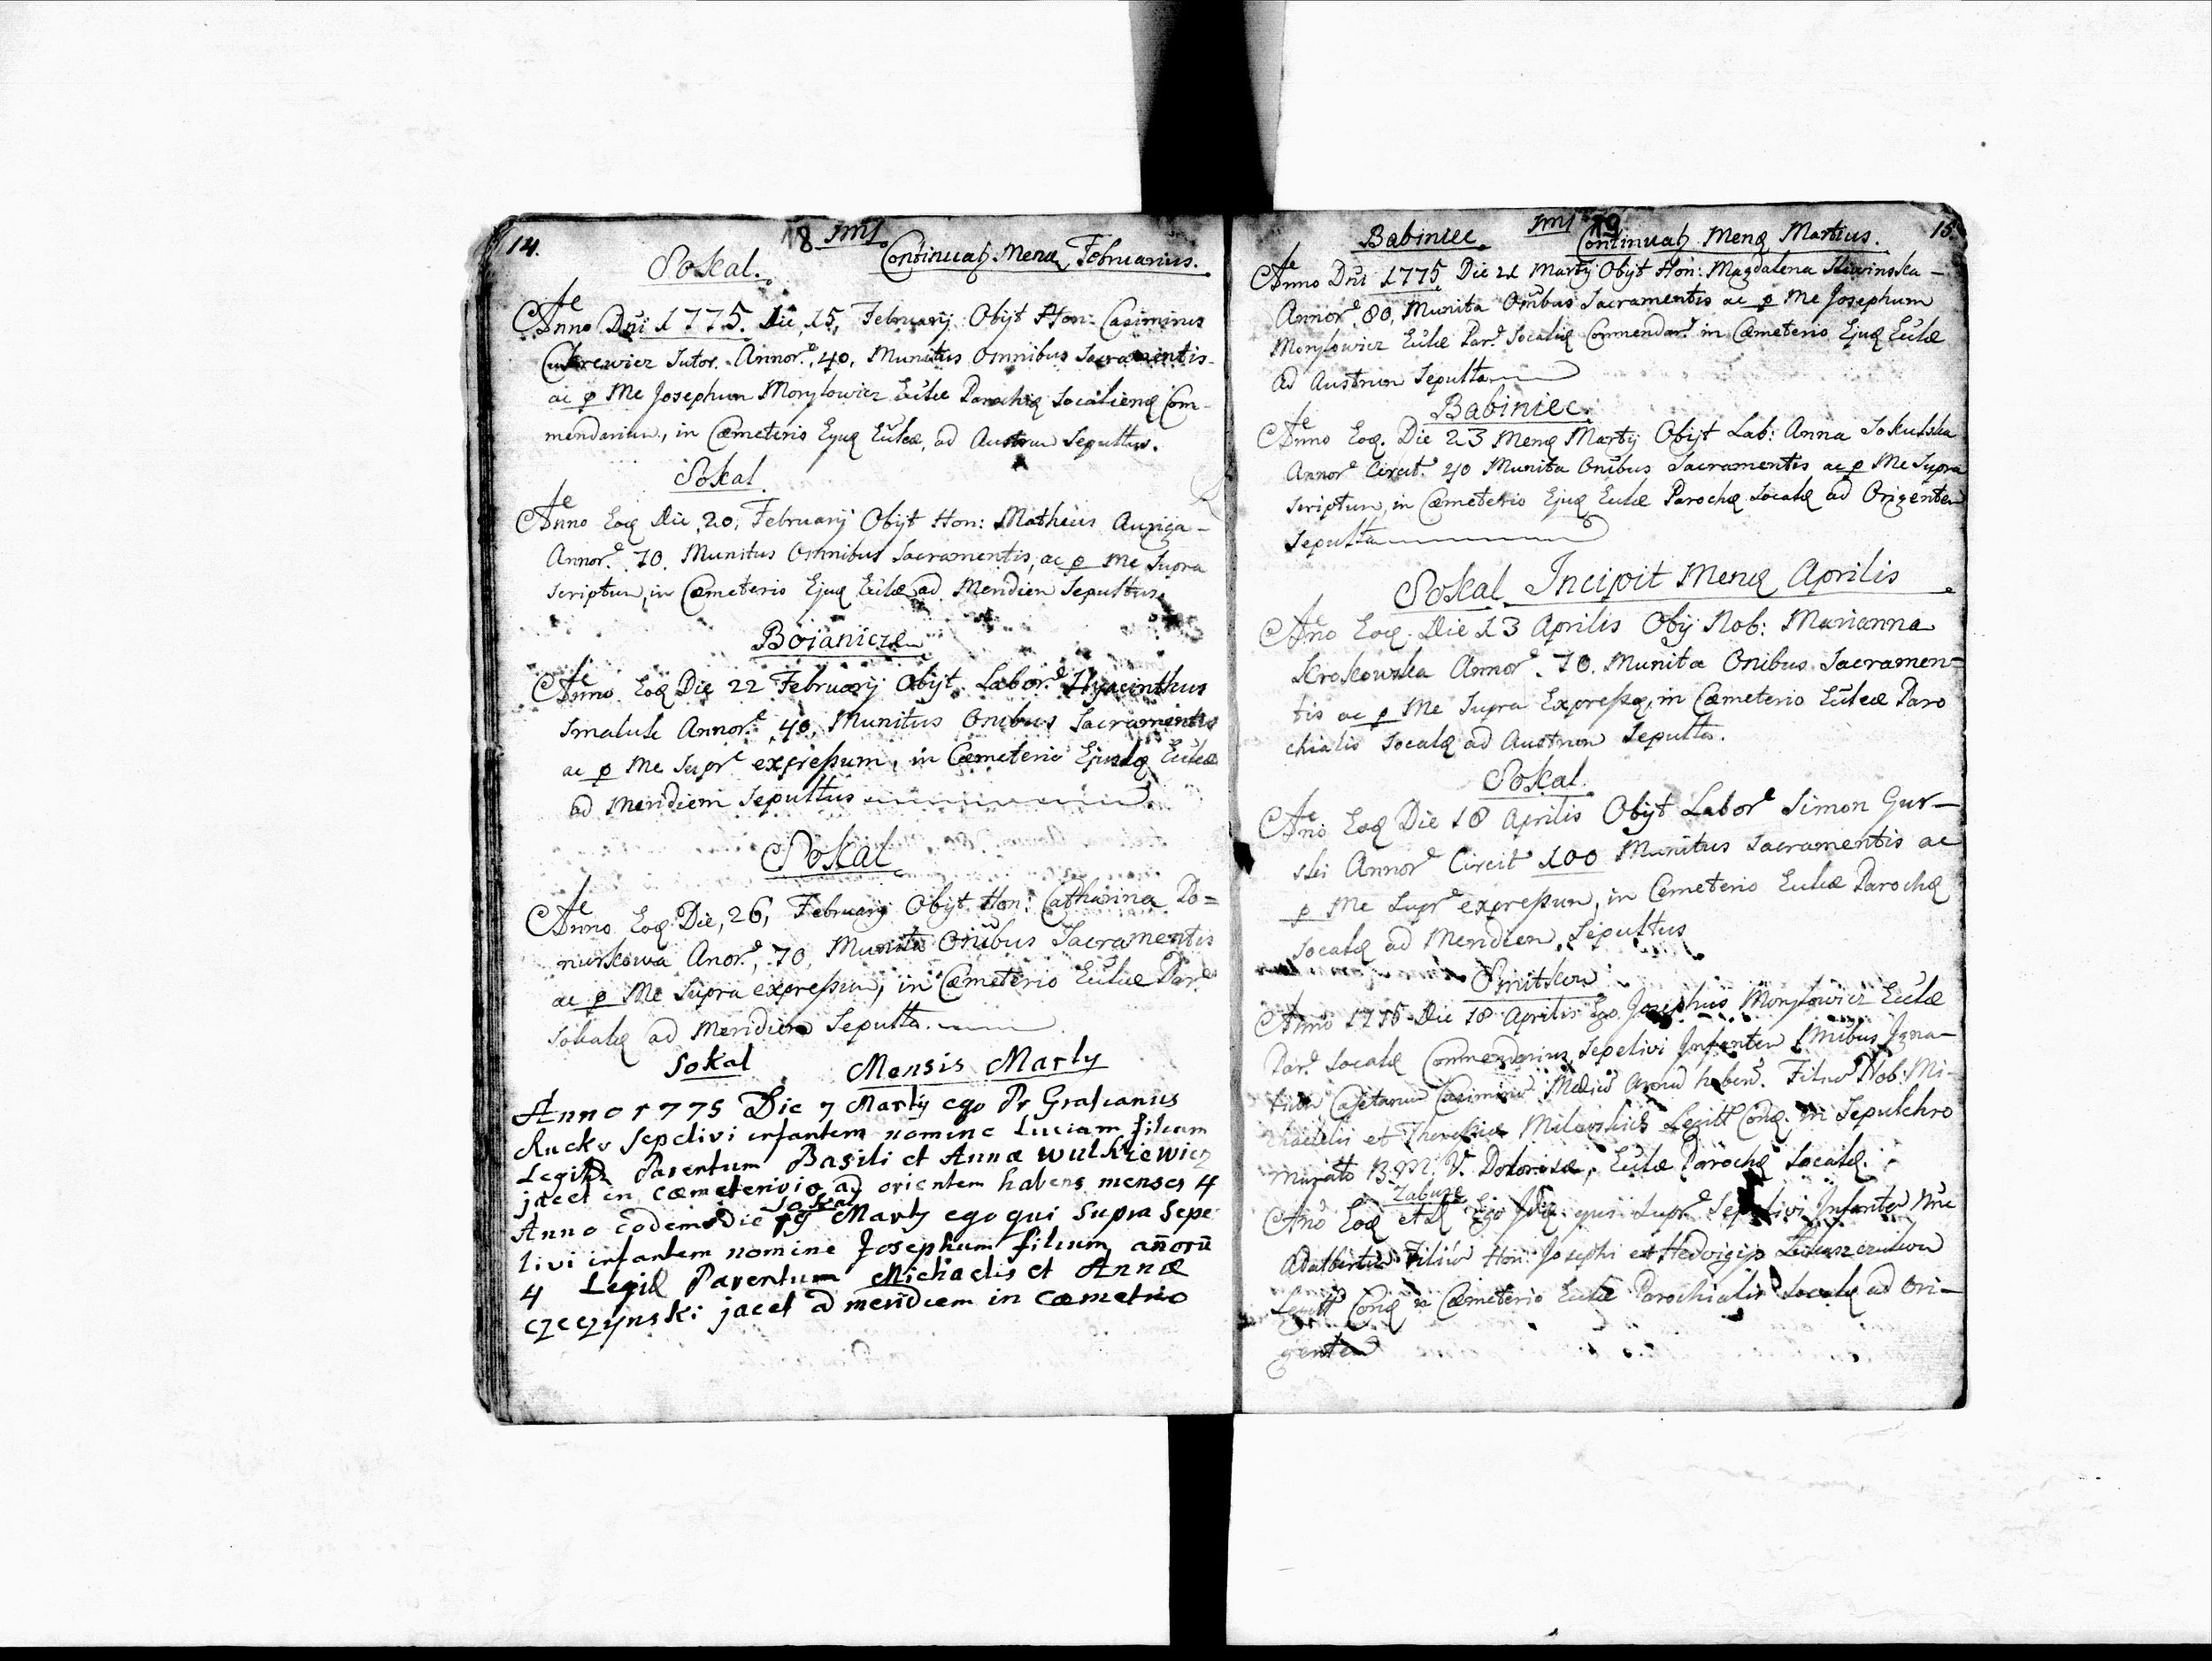 14. 18 JMJ
Sokal. Continuatꝫ Menꝫ Februarius.
Anno Dni 1775. Die 15, February Obijt Hon: Casimirus
Sutor. Annor. 40, Munitus Omnibus Sacramentis
ac p Me Josephum Moryłowicz Eccłæ Parochiæ Socalienꝫ Com-
mendarium, in Cæmeterio Ejusꝫ Eccłæ, ad Austrum Sepultus.
Sokal
Anno Eoꝫ Die 20, February Obijt Hon: Matheus Auriga -
Annor. 70. Munitus Omnibus Sacramentis, ac p Me Supra
scriptum, in Cæmeterio Ejusꝫ Eccłæ ad Meridiem Sepultus
Boianicze
Anno Eoꝫ Die 22 February Obijt Labor. Hyacinthus
Smaluk Annor. 40, Munitus Onibus Sacramentis
ac p Me Supr expressum, in Cæmeterio Ejusdꝫ Eccłæ
ad Meridiem Sepultus
Sokal
Anno Eoꝫ Die, 26, February Obijt Hon: Catharina Do=
nurkowa Anor. 70, Munita Onibus Sacramentis
ac p Me Supra expressum, in Cæmeterio Eccłæ Par.
Sokalꝫ ad Meridiem Sepulta.
Sokal Mensis Marty
Anno 1775 Die 7 Marty ego Pr Gratianus
Rucks sepelivi infantem nomine Luciam filiam
Legitꝫ Parentum Basili et Annæ Wulkiewicz
jacet in cæmeterivio ad orientem habens menses 4
Sokal
Anno Eodem Die 19 Marty ego qui Supra Sepe
livi infantem nomine Josephum filium, añorũ
4 Legiꝫ Parentum Michaelis et Annæ
Czeczynski jacet ad meridiem in cæmetrio
Babiniec. JMJ 19 Continuatꝫ Menꝫ Martius. 15.
Anno Dni 1775 Die 21 Marty Obijt Hon: Magdalena
Annor. 80, Munita Onibus Sacramentis ac p Me Josephum
Moryłowicz Eccłæ Par. Socaliꝫ Commendar. in Cæmeterio Ejusꝫ Eccłæ
ad Austrum Sepulta
Babiniec.
Anno Eoꝫ. Die 23 Menꝫ Marty Obijt Lab: Anna Sokulska
Annor. Circit. 40 Munita Onibus Sacramentis ac p Me Supra
scriptum, in Cæmeterio Ejusꝫ Eccłæ Parochꝫ Socalꝫ ad Origentem
Sepulta
Sokal Incipit Menꝫ Aprilis
Ano Eoꝫ. Die 13 Aprilis Obij Nob: Marianna
Krokowska Annor. 70. Munita Onibus Sacramen=
tis ac p Me Supra Expressꝫ, in Cæmeterio Eccłæ Paro
chialis Socalꝫ ad Austrum Sepulta.
Sokal.
Ano Eoꝫ Die 18 Aprilis Obijt Labor. Simon Gur-
ski Annor. Circit. 100 Munitus Sacramentis ac
p Me Supr expressum, in Cæmeterio Eccłæ Parochꝫ
Socalꝫ ad Meridiem, Sepultus
Smitkow
Anno 1775 Die 18 Aprilis Ego Josephus Moryłowicz Eccłæ
Par. Socalꝫ Commendarius Sepelivi Infantem Nnibus Igna-
tium Cajetanum Casimirum haben. Filium Nob: Mi-
chaelis et Theresiæ Legitt Conꝫ. in Sepulchro
Murato B. M. V. Dolorosæ, Eccłæ Parochꝫ Socalꝫ.
Zabuze
Ano Eoꝫ Ego Idꝫ qui Supr. Sepelivi Infantem Nne
Adalbertum Filium Hon: Josephi et Hedvigis
Legitt Conꝫ in Cæmeterio Eccłæ Parochialis Socalꝫ ad Ori-
gentem